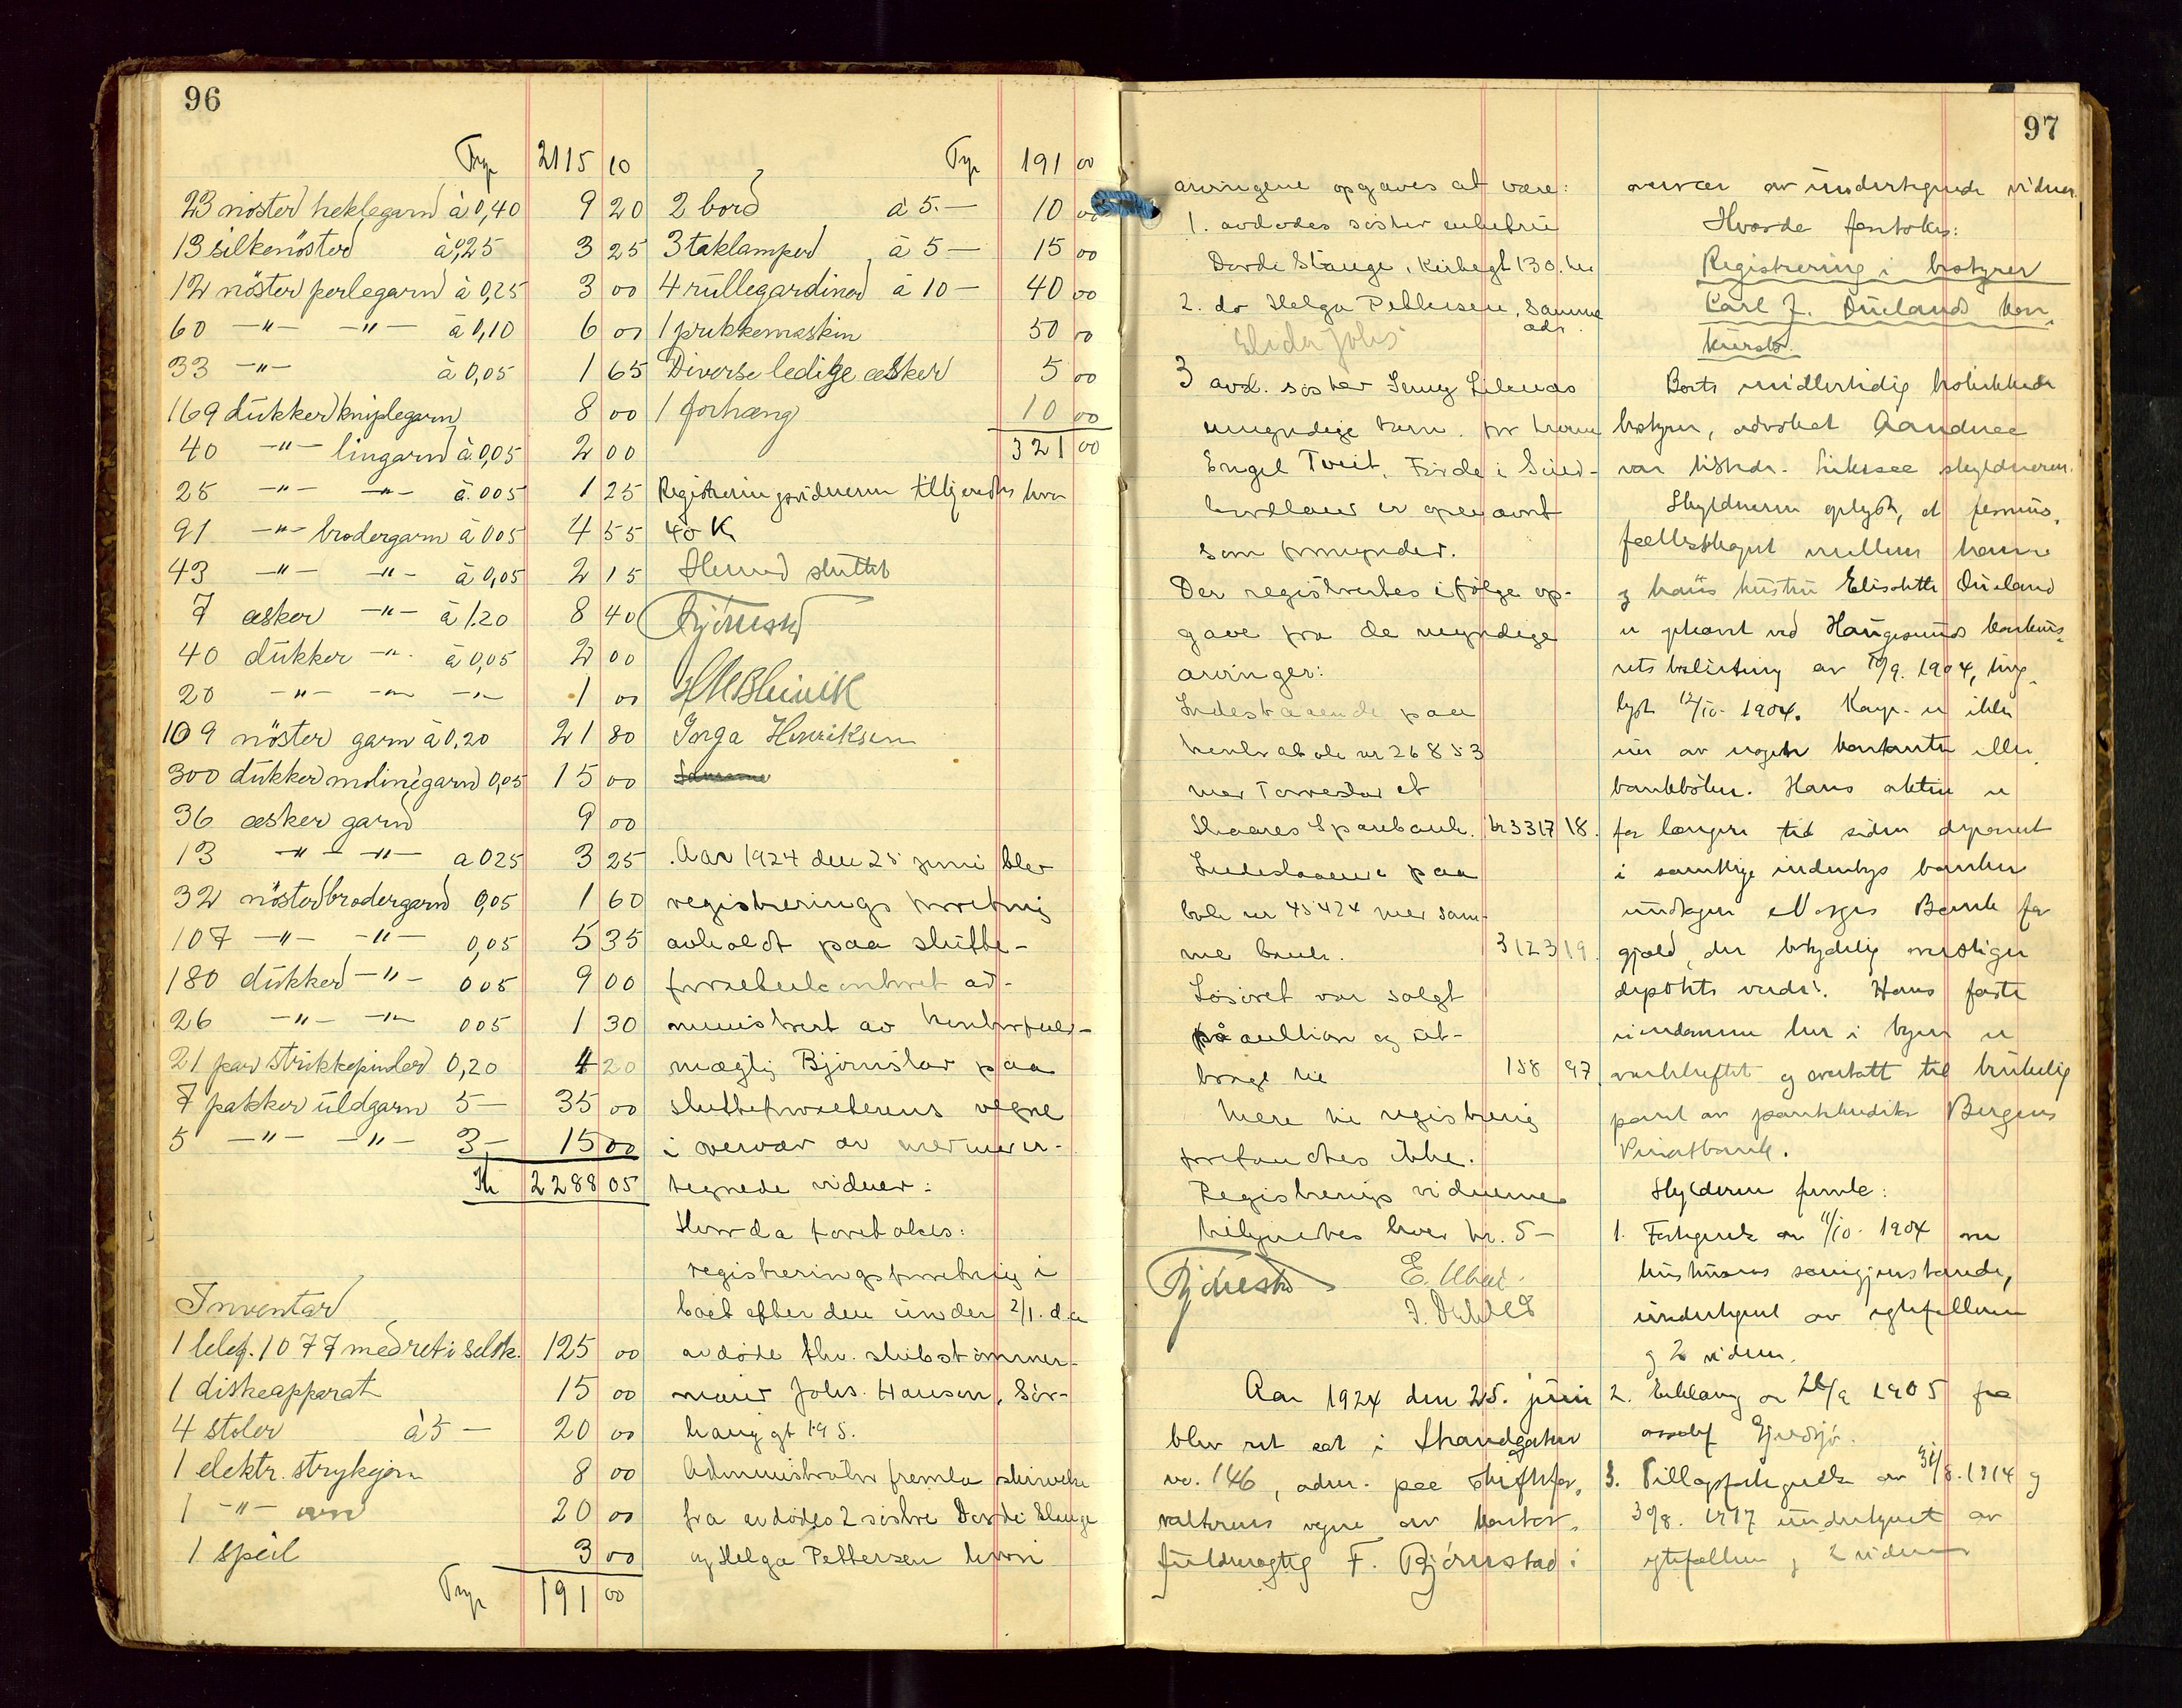 96
Trp 2115 10
23 nöster heklegarn à 0,40 9 20
13 silkenöster à 0,25 3 25
12 nöster perlegarn à 0,25 3 00
60 -"- -"- à 0,10 6 00
33 -"- à 0,05 1 65
169 dukker kniplegarn 8 00
40 -"- lingarn à 0,05 2 00
25 -"- -"- à 005 1 25
91 -"- brodergarn à 005 4 55
43 -"- -"- à 0,05 2 15
7 æsker -"- à 1.20 8 40
40 dukker -"- à 0,05 2 00
20 -"- -"- -"- 1 00
109 nöster garn à 0,20 21 80
300 dukker molinégarn 0,05 15 00
36 æsker garn 9 00
13 -"- -"- a 025 3 25
32 nöster brodergarn 0,05 1 60
107 -"- -"- 0,05 5 35
180 dukker -"- 005 9 00
26 -"- -"- 005 1 30
21 par strikkepinder 0,20 4 20
7 pakker uldgarn 5- 35 00
5 -"- -"- 3,- 15 00
Kr 2288 05
Inventar
1 telef. 1077 med ret i selsk. 125 00
1 diskeapparat 15 00
4 stoler à 5 - 20 00
1 elektr. strykejern 8 00
1 -"- ovn 20 00
1 speil 3 00
Trp 191 00
Trp 191 00
2 bord à 5.- 10 00
3 taklamper à 5 - 15 00
4 rullegardiner à 10 - 40 00
1 prikkemaskin 50 00
Diverse ledige æsker 5 00
1 forhæng 10 00
321 00
Registreringsvidnerne tilkjendtes hver
40 K
Hermed sluttet
Bjørnstad
Inga Henriksen
Aar 1924 den 25 juni blev
registrerings forretning
avholdt paa skifte-
forvalterkontoret ad-
ministrert av kontorfuld-
mægtig Bjørnstad paa
skifteforvalterens vegne
i overvær av nedenun-
tegnede vidner:
Hvorda foretokes:
registreringsforretning i
boet efter den under 2/1. d.a
avdøde fhv. skibstømmer-
mand Johs. Hansen, Sør-
haug gt 195.
Administrator fremla skrivelse
fra avdødes 2 søstre Dorde Stange
og Helga Pettersen hvori
97
arvingene opgaves at være:
1. avdødes søster enkefru
Dorde Stange, Kirkegt 130. her
2. do Helga Pettersen, samme
adr.
Elida Johs
3 avd. søster Jenny
umyndige barn. for hvem
Engel Tveit, Førde i Sund-
hordland er opnævnt
som formynder.
Der registrertes ifølge op-
gave fra de myndige
arvinger:
Indestaaende paa
kontrabok nr 26853
med Torvestad et
Skaares Sparebank. kr 3317 18.
Indestaaende paa
bok nr 45424 med sam-
me bank. 3123 19.
Løsøret var solgt
på auktion og ut-
bragt til 158 97.
Mere til registrering
forefandtes ikke.
Registrerings vidnerne
tilkjendtes hver kr. 5 -
Bjørnstad
Aar 1924 den 25. juni
blev ret sat i Strandgaten
no. 146, adm. paa skiftefor-
valterens vegne av kontor-
fuldmægtig F. Bjørnstad i
overvær av undertegnede vidner.
Hvorda foretokes:
Registrering i bostyrer
Carl J. Dueland kon-
kursbo.
Boets midlertidig beskikkede
bostyrer, advokat Aandree
var tilstede. Likesaa skyldneren.
Skyldneren oplyste, at formues-
fællesskapet mellem ham
og hans hustru Elisabeth Dueland
er ophævet ved Haugesunds konkurs-
rets beslutning av 10/9. 1904, ting-
lyst 12/10. 1904. Kapt. er ikke
eier av nogen kontanter eller
bankbøker. Hans aktier er
for længere tid siden deponert
i samtlige indenbys banker
undtagen Norges Bank for
gjæld, der betydelig overstiger
depotets værdi. Hans faste
eiendomme her i byen er
pantheftet og overtatt til brukelig
pant av pantkreditor Bergens
Privatbank.
Skyldneren fremla:
1. Ektepakt av 11/10. 1904 om
hustruens særgjenstande,
undertegnet av egtefællerne
og 2 vidner.
2. Erklæring av 26/9 1905 fra
3. Tillægsektepakt av 31/8. 1914 og
30/8. 1917 undertegnet av
egtefællerne og 2 vidner